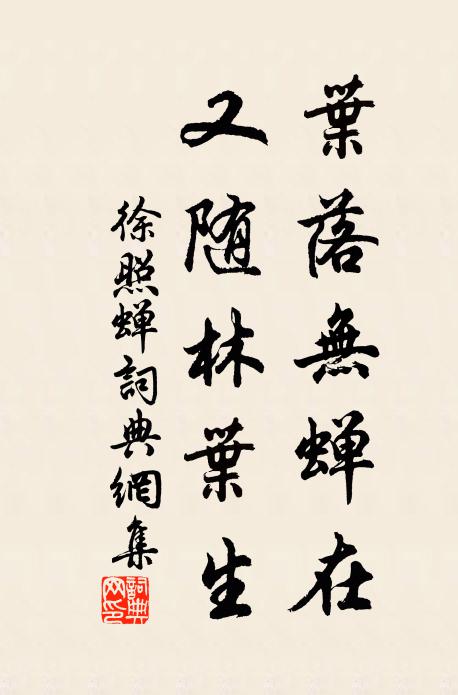 葉落無蝉在
又随林葉生
徐照蝉詞典網集
詞典网印